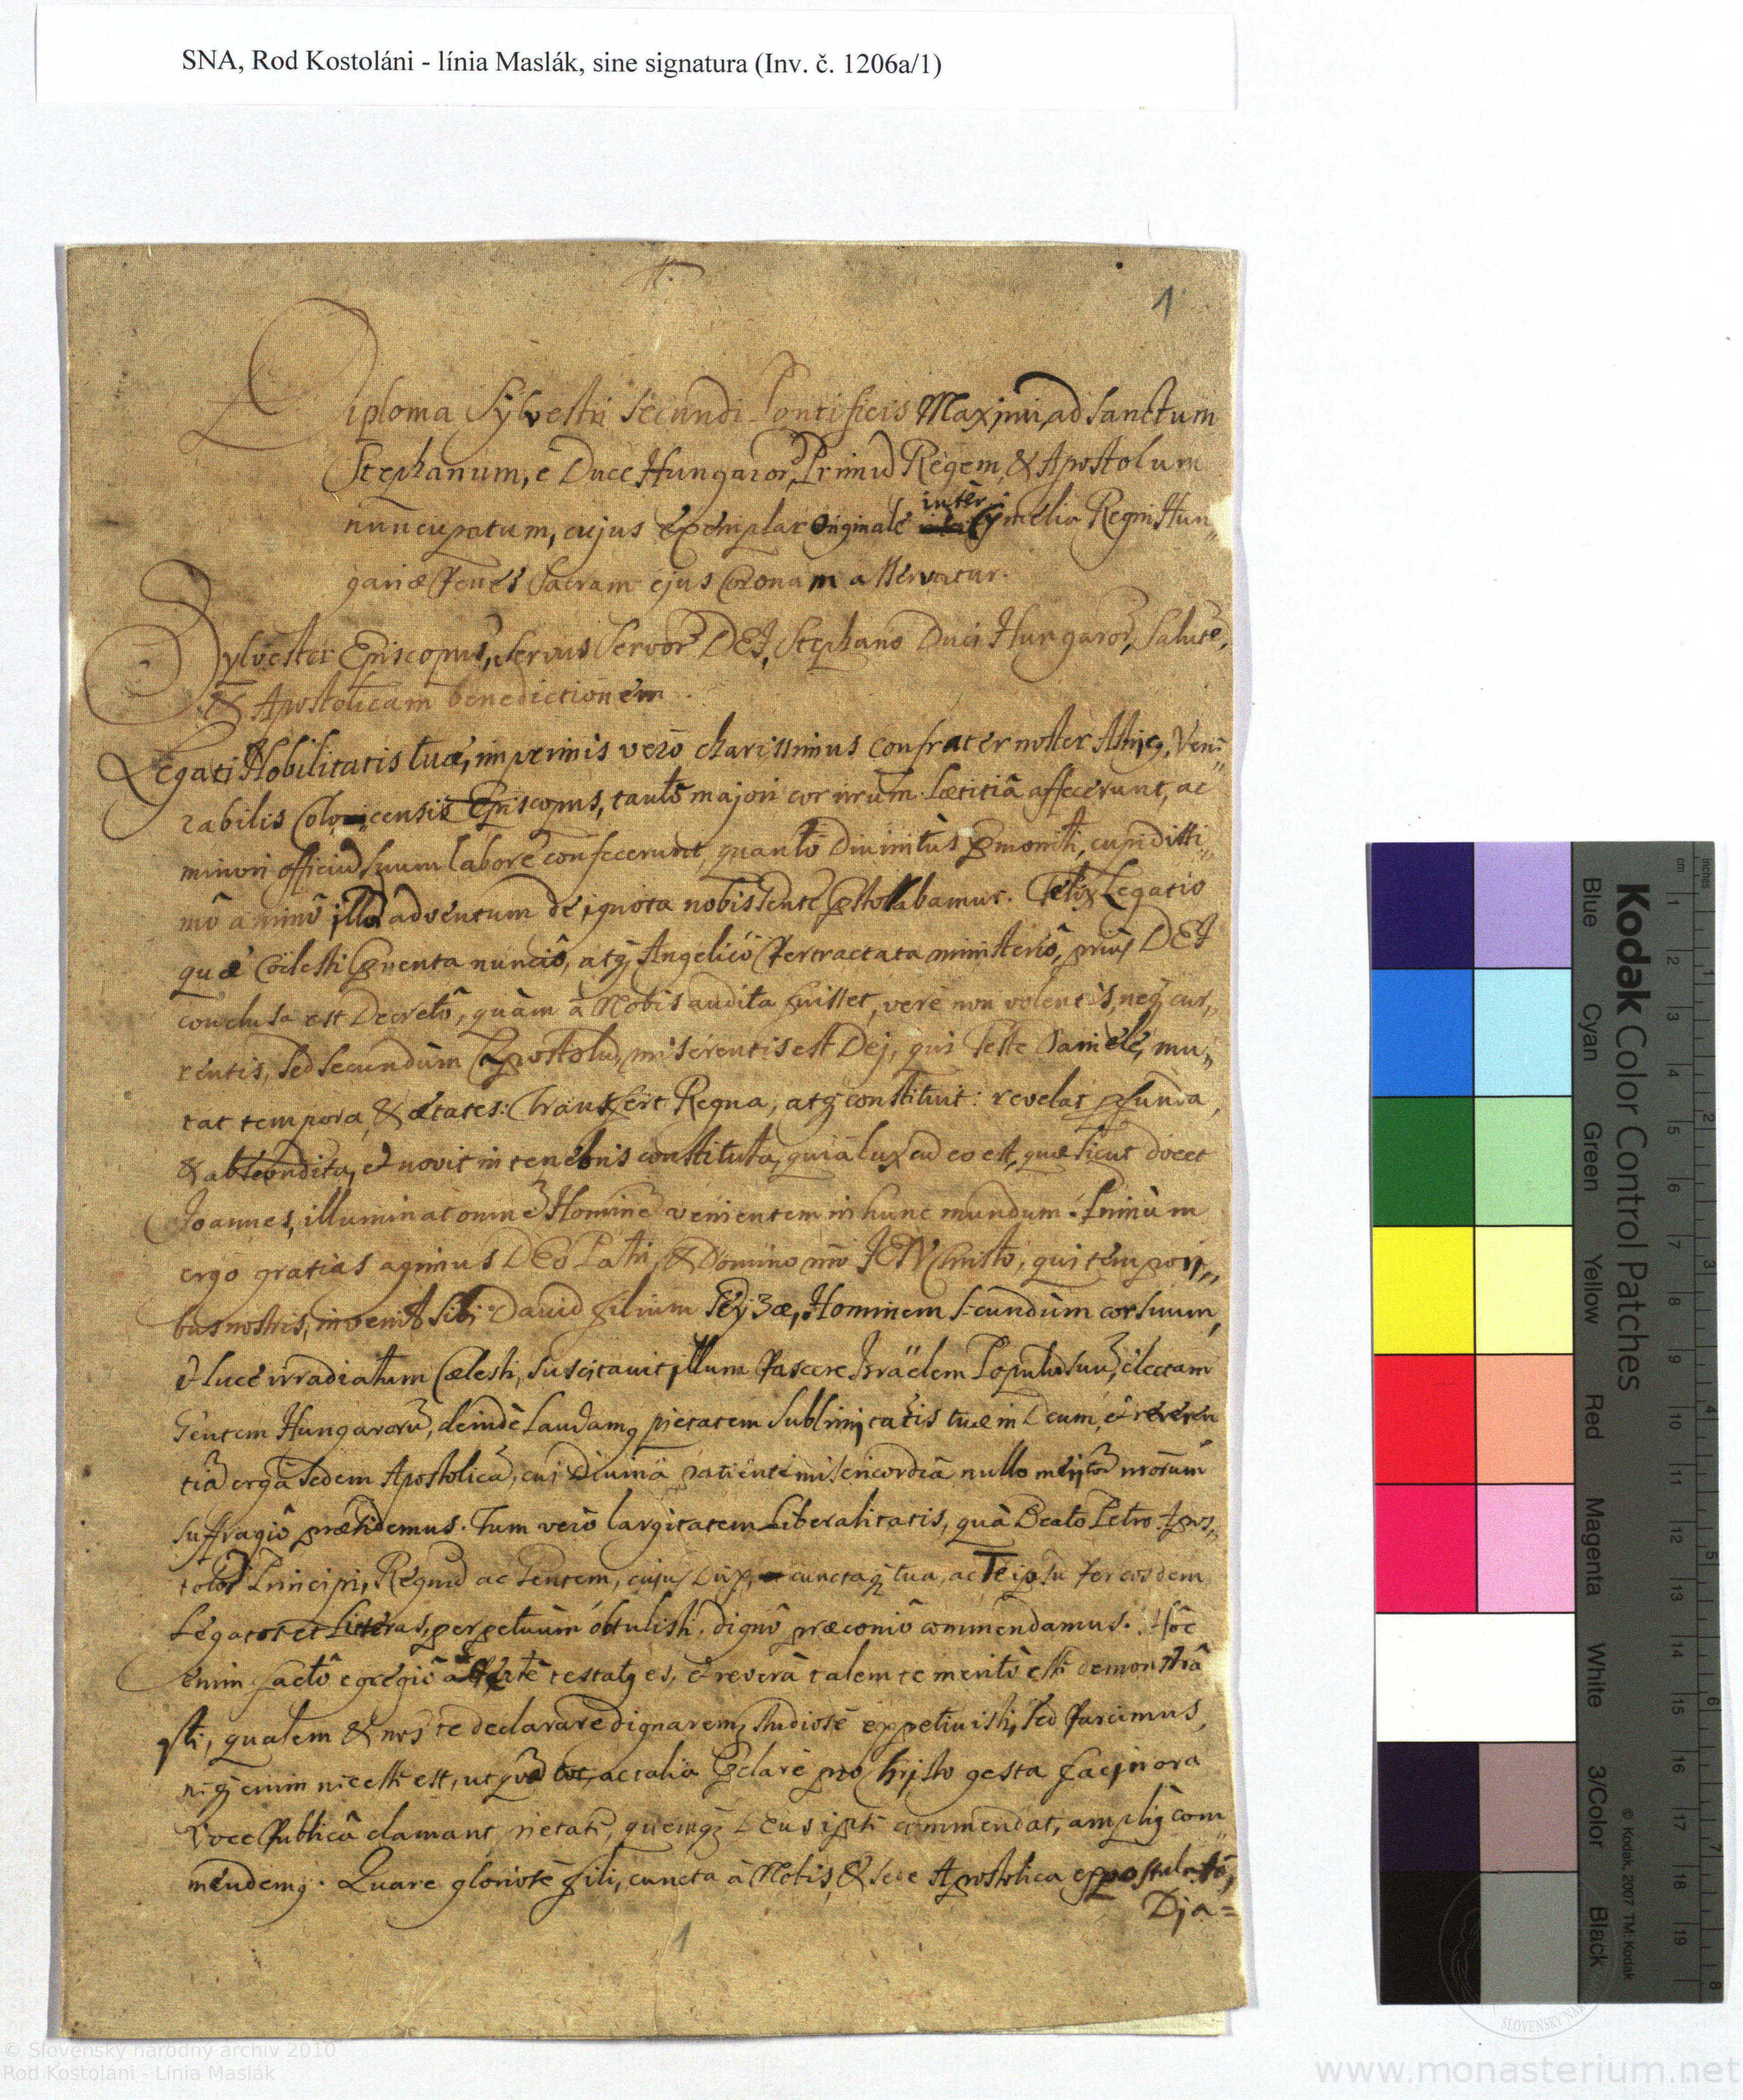 SNA, Rod Kostoláni - línia Maslák, sine signatura (Inv. č. 1206a/1)
1
Diploma Sylvestri Secundi Pontificis Maximi, ad Sanctum
Stephanum, è Duce Hungaror, Primũ Regem, & Apostolum
nuncupatum, cujus exemplar originale inter Cymelia Regni Hun„
gariæ penes Sacram ejus Coronam asservatur.
Sylvester Episcopus, Servus Servor DEI, Stephano Duci Hungaror, Salutẽ,
& Apostolicam benedictionem
Legati Nobilitatis tuæ, imprimis verò charissimus confrater noster Astricq, Vene„
rabilis Colocensis Episcopus, tantò majori cor nrum lætitiâ affecerunt, ac
minori officiũ suum labore confecerunt, quantò Divinitùs pmoniti, cupidissi„
mô animô illor adventum de ignota nobis Gente pstolabamur. Felix Legatio
quæ Cœlesti pventa nunciô, atq Angelicô pertractata ministeriô, priùs DEI
conclusa est Decretô, quàm à Nobis audita fuisset, verè non volentis, neq cur„
rentis, sed secundùm Apostolũ, miserentis est Dej, qui Teste Daniele, mu„
tat tempora, & ætates: transfert Regna, atq constituit: revelat pfunda,
& abscondita, et novit in tenebris constituta, quia lux cũ eo est, quæ sicut docet
Joannes, illuminat omnẽ Hominẽ venientem in hunc mundum. Primùm
ergo gratias agimus DEo Patri, & Domino nro JEsu Christo, qui tempori„
bus nostris, invenit sibi David filium Geyzæ, Hominem secundùm cor suum,
et luce irradiatum Cælesti, suscitavit illum pascere Israëlem Populũ suũ, electam
Gentem Hungarorũ, deindè Laudamq pietatem Sublimitatis tuæ in Deum, et reveren
tiã ergà Sedem Apostolicã, cui Divinâ patiente misericordiâ nullo meritor nrorum
suffragiô præsidemus. Tum verò largitatem Liberalitatis, quà Beato Petro Apos„
tolor Principi, Regnũ ac Gentem, cujus Dux, cunctaq tua, ac Te ipsũ per eosdem
Legatos et Litteras, perpetuùm obtulisti, dignô præconiô commendamus. Hôc
enim factô egregiô apertè testatq es, et reverà talem te meritò esse demonstra
sti, qualem & nos te declarare dignaremq studiosè expetivisti, sed parcimus,
neq enim necesse est, ut quẽ tot, ac talia pclarè pro Christo gesta facinora
voce publicâ clamant
mendemq. Quare gloriose fili, cuncta à Nobis, & Sede Apostolica expostulata,
Dia=
1
Kodak Color Control Patches
© Kodak, 2007 TM: Kodak
Blue Cyan Green Yellow Red Magenta White 3/Color Black
cm 1 2 3 4 5 6 7 8 9 10 11 12 13 14 15 16 17 18 19
inches 1 2 3 4 5 6 7 8
© Slovenský národný archív 2010
Rod Kostoláni - Línia Maslák
www.monasterium.net